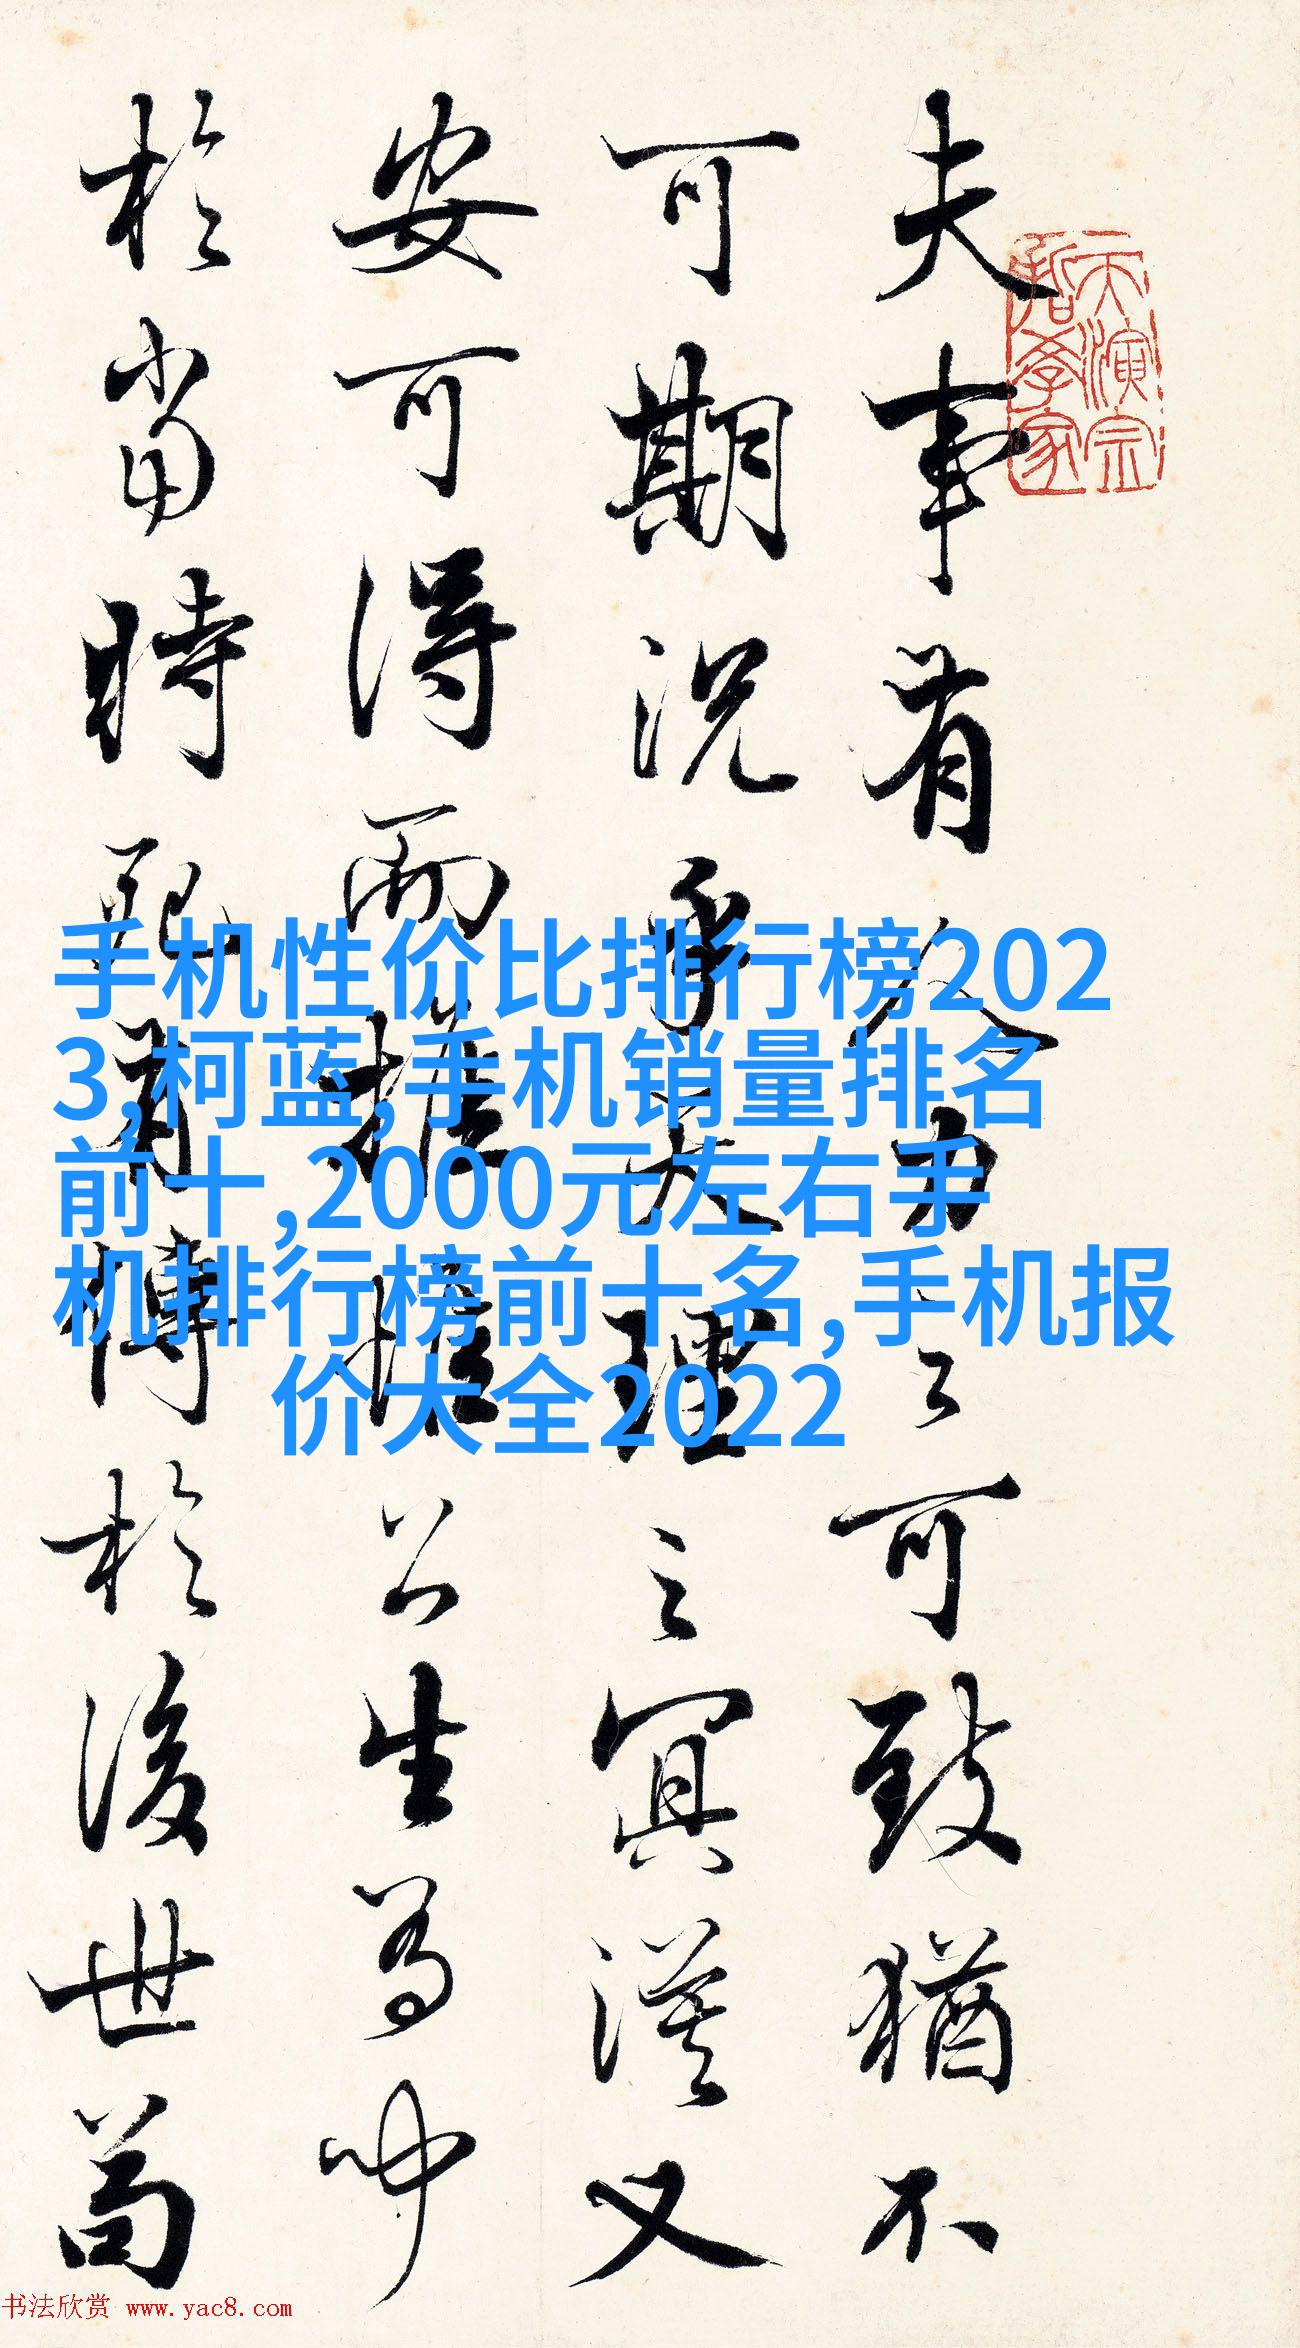 夫事有人力之可致猶不
可期況乎天理之冥漠又
安可得而推惟公生有聞
於當時死有傳於後世苟
天演宗
哲學家
手机性价比排行榜202
3,柯蓝,手机销量排名
前十,2000元左右手
机排行榜前十名,手机报
价大全2022
书法欣赏 www.yac8.com